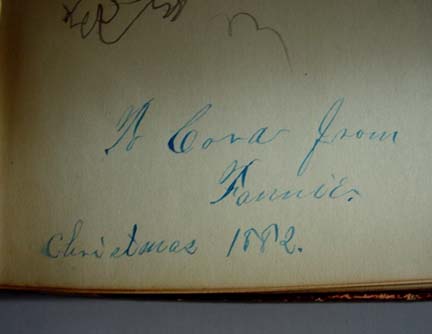 To Cora from
Fannie.
Christmas 1882.